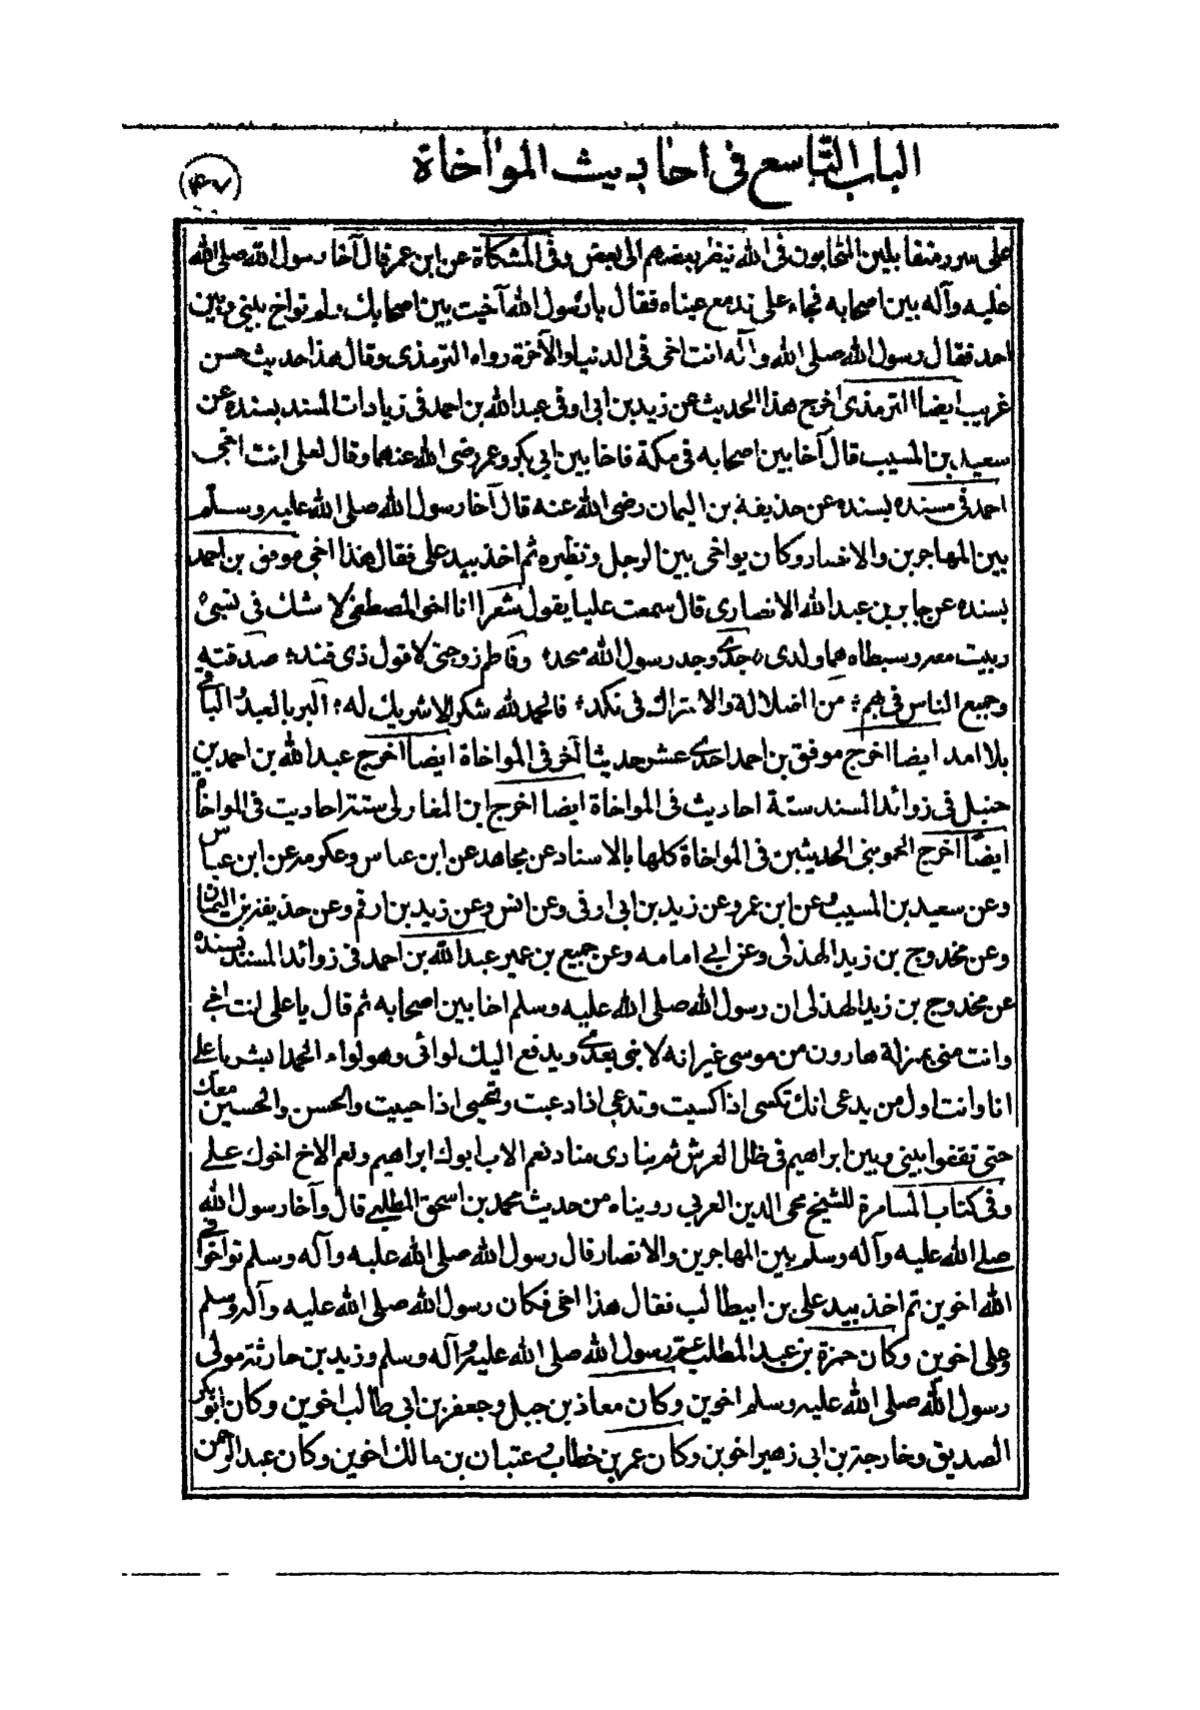 الباب التاسع فى احاديث المواخاة
٤٧
على سرر متقابلين المتحابون فى الله ينظر بعضهم الى بعض وفى المشكاة عن ابن عمر قال آخا رسول الله صلى الله
عليه وآله بين اصحابه فجاء على تدمع عيناه فقال يا رسول الله آخيت بين اصحابك ولم تواخ بينى وبين
احد فقال رسول الله صلى الله وآله انت اخى فى الدنيا والآخرة رواه الترمذى وقال هذا حديث حسن
غريب ايضا الترمذى اخرج هذا الحديث عن زيد بن ابى اوفى عبد الله بن احمد فى زيادات المسند بسنده عن
سعيد بن المسيب قال آخا بين اصحابه فى مكة فاخا بين ابى بكر وعمر رضى الله عنهما وقال لعلى انت اخى
احمد فى مسنده بسنده عن حذيفة بن اليمان رضى الله عنه قال آخا رسول الله صلى الله عليه وسلم
بين المهاجرين والانصار وكان يواخى بين الرجل ونظيره ثم اخذ بيد على فقال هذا اخى موفق بن احمد
بسنده عن جابر بن عبد الله الانصارى قال سمعت عليا يقول شعرا انا اخو المصطفى لا شك فى نسبى
ربيت معه وسبطاه هما ولدى جدى وجد رسول الله متحد وفاطم زوجتى لا قول ذى فند صدقته
وجميع الناس فى بهم من الضلالة والاشراك فى نكد فالحمد لله شكرا لا شريك له البر بالعبد والباقى
بلا امد ايضا اخرج موفق بن احمد احدى عشر حديثا آخر فى المواخاة ايضا اخرج عبد الله بن احمد بن
حنبل فى زوائد المسند ستة احاديث فى المواخاة ايضا اخرج ابن المغازلى ستة احاديث فى المواخاة
ايضا اخرج الحموينى الحديثين فى المواخاة كلها بالاسناد عن مجاهد عن ابن عباس وعكرمة عن ابن عباس
وعن سعيد بن المسيب عن ابن عمر وعن زيد بن ابى اوفى وعن انس وعن زيد بن ارقم وعن حذيفة بن اليمان
وعن مخدوج بن زيد الهذلى وعن ابى امامه وعن جميع بن عمير عبد الله بن احمد فى زوائد المسند بسنده
عن مخدوج بن زيد الهذلى ان رسول الله صلى الله عليه وسلم اخا بين اصحابه ثم قال يا على انت اخى
وانت منى بمنزلة هارون من موسى غير انه لا نبى بعدى ويدفع اليك لوائى وهو لواء الحمد ابشر يا على
انا وانت اول من يدعى انك تكسى اذا كسيت وتدعى اذا دعيت وتحيى اذا حييت والحسن والحسين معك
حتى تقفوا بينى وبين ابراهيم فى ظل العرش ثم ينادى مناد نعم الاب ابوك ابراهيم ونعم الاخ اخوك على
وفى كتاب المسامرة للشيخ محى الدين العربى رويناه من حديث محمد بن اسحق المطلبى قال وآخا رسول الله
صلى الله عليه وآله وسلم بين المهاجرين والانصار قال رسول الله صلى الله عليه وآله وسلم تواخوا فى
الله اخوين ثم اخذ بيد على بن ابيطالب فقال هذا اخى فكان رسول الله صلى الله عليه وآله وسلم
وعلى اخوين وكان حمزة بن عبد المطلب عم رسول الله صلى الله عليه وآله وسلم وزيد بن حارثة مولى
رسول الله صلى الله عليه وسلم اخوين وكان معاذ بن جبل وجعفر بن ابى طالب اخوين وكان ابو بكر
الصديق وخارجة بن ابى زهير اخوين وكان عمر بن خطاب وعتبان بن مالك اخوين وكان عبد الرحمن